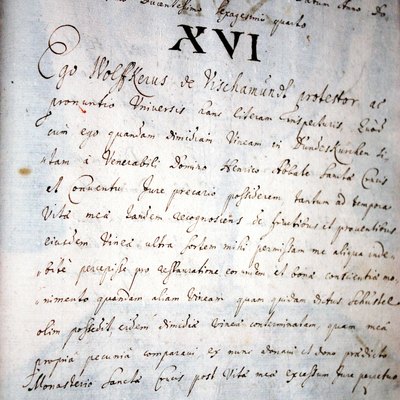 Ducentesimo Exagesimo quarto
XVI
Ego Wolffkerus de Vischamundt protestor ac
pronuntio Universis hans literam inspecturis. Quod
cum ego quandam dimidiam Vineam in Dundeskürchen si-
tam à Venerabili Domino Henrico Abbate Sanctæ Crucis
et Conventu Jure precario possiderem, tantum ad tempora
Vitæ meæ eandem recognoscens de fructibus et proventibus
eiusdem Vineæ ultra sortem mihi permissam me aliqua inde-
bitè percepisse pro restauratione eorundem et bonæ conscientiæ mo-
nimento quandam aliam Vineam quam quidam dictus Schüstel
olim possedit eidem dimidiæ Vineæ conterminalam, quam meâ
propia pecuniâ comparavi ex nunc donavi et dono prædicto
Monasterio Sanctæ Crucis post Vitæ meæ excessum Jure perpetuo